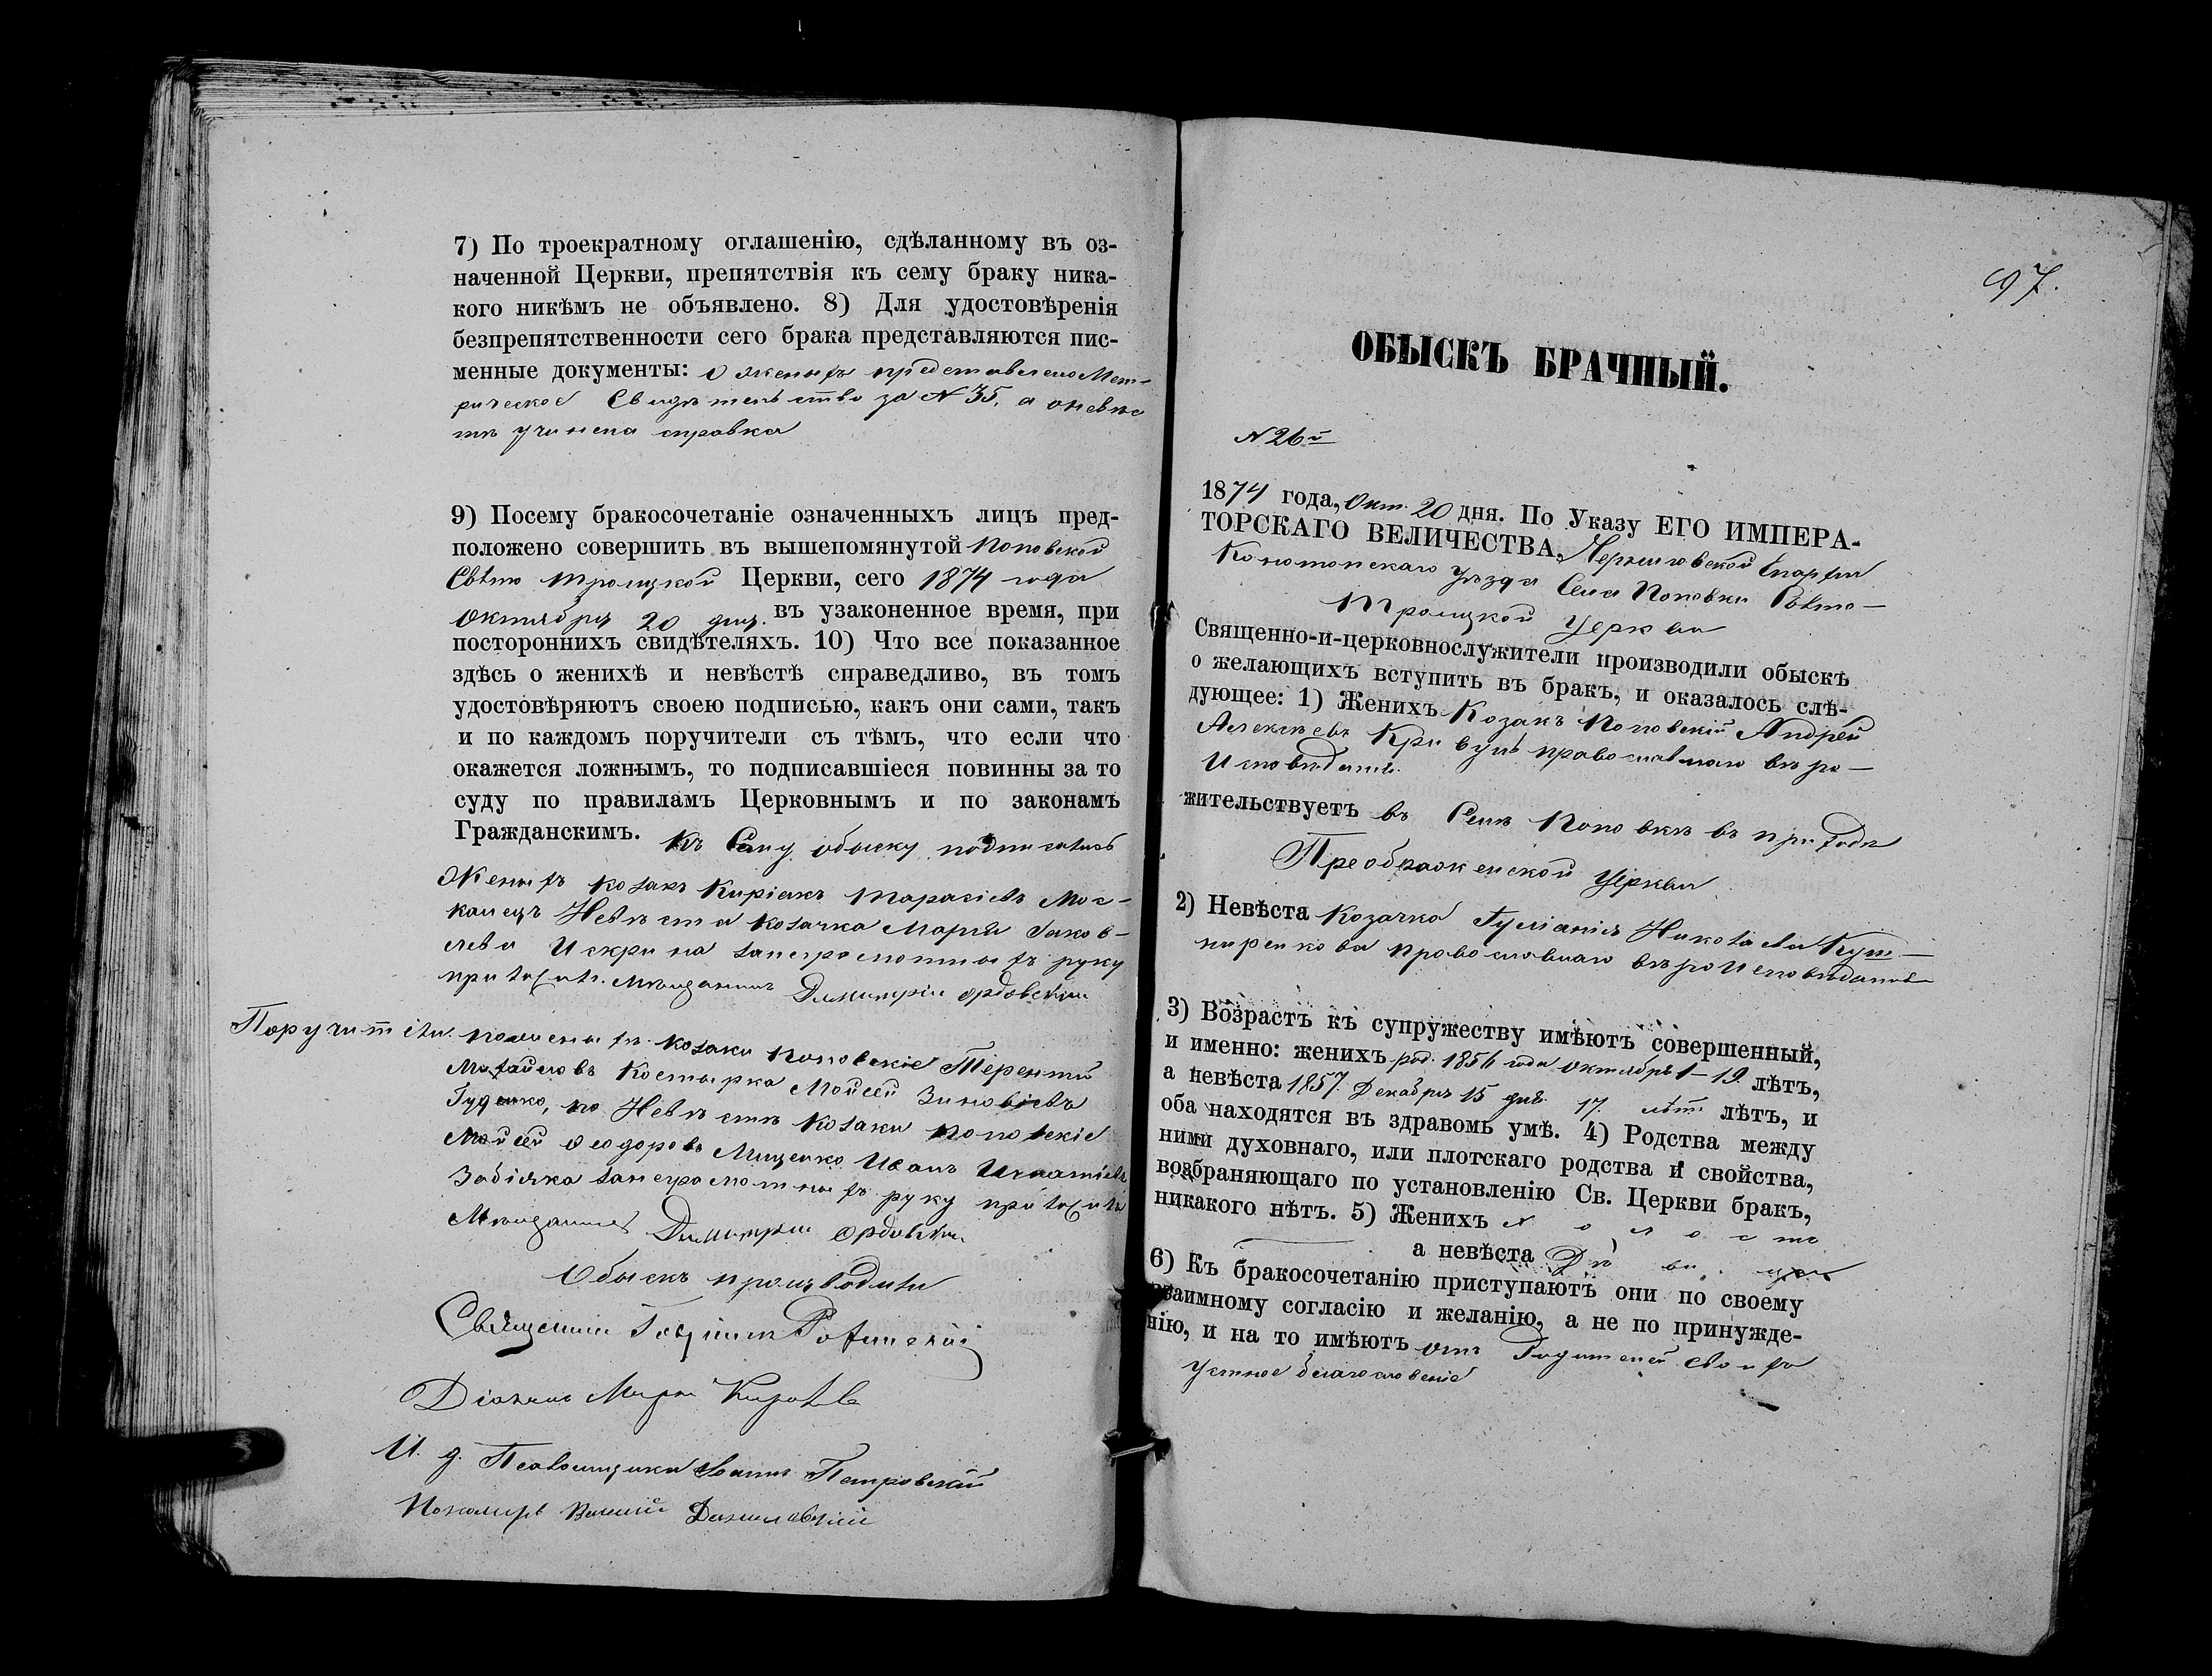 7) По троекратному оглашенію, сдѣланному въ оз-
наченной Церкви, препятствія къ сему браку ника-
кого никѣмъ не объявлено. 8) Для удостовѣренія
безпрепятственности сего брака представляются пис-
менные документы: о женихѣ представлено Мет-
рическое Свидѣтельство за N 35, а о невѣс
тѣ учинена справка
9) Посему бракосочетаніе означенныхъ лицъ пред-
положено совершить въ вышепомянутой Поповской
Свято Троицкой Церкви, сего 1874 года
Октября 20 дня. въ узаконенное время, при
постороннихъ свидѣтеляхъ. 10) Что все показанное
здѣсь о женихѣ и невѣстѣ справедливо, въ томъ
удостовѣряютъ своею подписью, какъ они сами, такъ
и по каждомъ поручители съ тѣмъ, что если что
окажется ложнымъ, то подписавшіеся повинны за то
суду по правиламъ Церковнымъ и по законамъ
Гражданскимъ. Къ Сему обыску подписались
Женихъ козакъ Киріакъ Тарасіевъ Мос-
калецъ Невѣста козачка Марія Іаков-
лева Искрина занеграмотныхъ руку
приложилъ Мѣщанинъ Димитрій
Поручители. по женихѣ козаки поповскіе Терентій
Михайловъ Костырка Мойсей Зиновіевъ
Гуденко, по Невѣстѣ козаки поповскіе
Мойсей Ѳеодоровъ Мищенко Иванъ Игнатіевъ
Забіяка занеграмотныхъ руку приложилъ
Мѣщанинъ Димитрій
Обыскъ производили
Священникъ
Діаконъ
И. д. Псаломщика Іоаннъ Петровскій
Пономарь
97.
ОБЫСКЪ БРАЧНЫЙ.
N 26й
1874 года, Окт. 20 дня. По Указу ЕГО ИМПЕРА-
ТОРСКАГО ВЕЛИЧЕСТВА, Черниговской Епархіи
Конотопскаго уѣзда Села Поповки Свято-
Троицкой Церкви
Священно-и-церковнослужители производили обыскъ
о желающихъ вступить въ бракъ, и оказалось слѣ-
дующее: 1) Женихъ Козакъ Поповскій Андрей
Алексѣевъ Кривуль православнаго вѣро-
Исповѣданія.
жительствуетъ въ Селѣ Поповкѣ въ приходѣ
Преображенской Церкви
2) Невѣста Козачка Гуліанія Николаева Куш-
ниренкова православнаго вѣроисповѣданія
3) Возрастъ къ супружеству имѣютъ совершенный,
и именно: женихъ род. 1856 года октября 1 – 19. лѣтъ,
а невѣста 1857. Декабря 15 дня. 17. лѣт. лѣтъ, и
оба находятся въ здравомъ умѣ. 4) Родства между
ними духовнаго, или плотскаго родства и свойства,
возбраняющаго по установленію Св. Церкви бракъ,
никакого нѣтъ. 5) Женихъ холостъ
а невѣста Дѣвица
6) Къ бракосочетанію приступаютъ они по своему
взаимному согласію и желанію, а не по принужде-
нію, и на то имѣютъ отъ Родителей своихъ
устное благословеніе